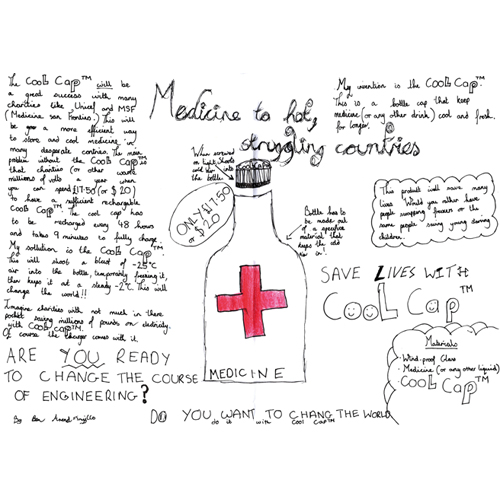 The COOL Cap™ will be
a great success with many
charities like Unicef and MSF
(Medicine san Frontiers). This will
be a more efficient way
to store and cool medicine in
many desperate countries. The main
problem without the COOL Cap™ is
that charities (or other
millions of volts a year when
you can spend £17.50 (or $20)
to have a sufficient rechargable
COOL Cap™. The cool cap has
to be recharged every 48 hours
and takes 9 minutes to fully charge.
My sollution is the COOL Cap™.
This will shoot a blast of -25°C
air into the bottle, temporarily freezing it,
then keeps it at a steady -2°C. This will
change the world!!
Imagine charities with not much in there
pocket saving millions of pounds on electricity.
with COOL Cap™.
Of course the charger comes with it.
ARE YOU READY
TO CHANGE THE COURSE
OF ENGINEERING?
By Ben
Medicine to hot,
struggling countries
When screwed
on tight shoots
cold air into
the bottle.
COOL Cap
ONLY £17.50
or $20
Bottle has to
be made out
of a specific
material that
keeps the cold
air in!
MEDICINE
My invention is the COOL Cap™.
This is a bottle cap that keep
medicine (or any other drink) cool and fresh
for longer.
This product will save many
lives. Would you rather have
people swapping frozen or the
same people saving young during
children.
SAVE LIVES WITH
COOL Cap™
Materials
· Wind-proof Glass
· Medicine (or any other liquid)
· COOL Cap™
DO YOU WANT TO CHANG THE WORLD
do it with Cool Cap™